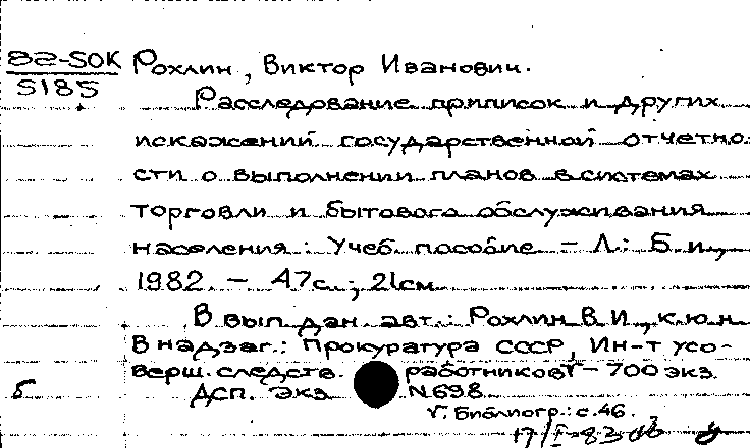 82-SOK Рохлин, Виктор Иванович.
5185
Расследование приписок и других
искажений государственной отчетно-
сти о выполнении планов в системах
торговли и бытового обслуживания
населения: Учеб. пособие – Л.: Б. и.,
1982. – 47 с.; 21 см
В вып. дан. авт.: Рохлин В. И., к.ю.н.
В надзаг.: Прокуратура СССР, Ин-т усо-
верш. следств. работников – 700 экз.
б ДСП. экз N 698
Библиогр.: с. 46.
17/I-83